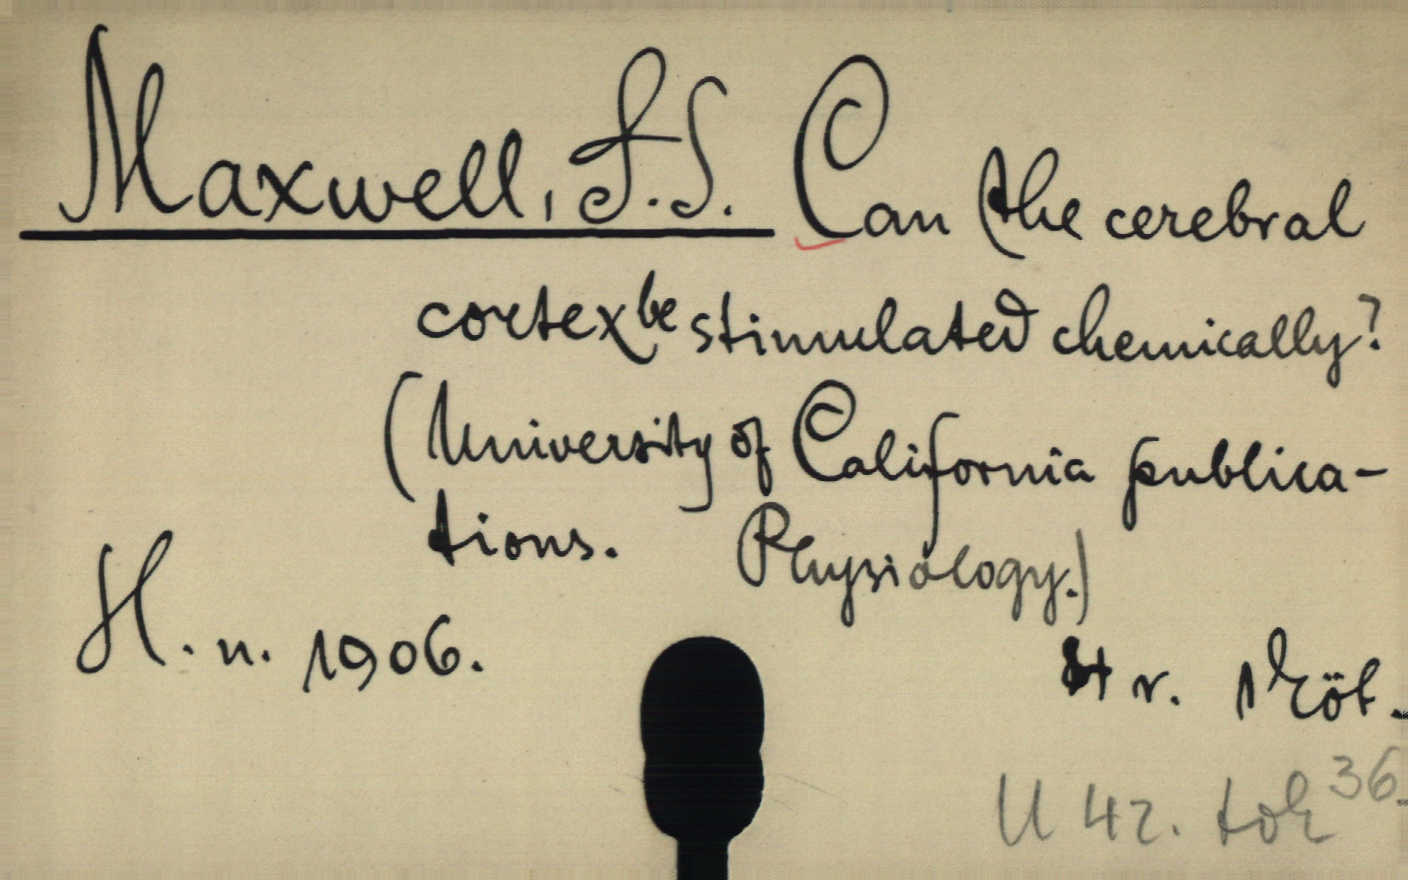 Maxwell, S.S. Can the cerebral
cortex be stimulated chemically?
(University of California publica-
tions. Physiology.)
H. n. 1906.
r. Köt.
U 42. tok 36.